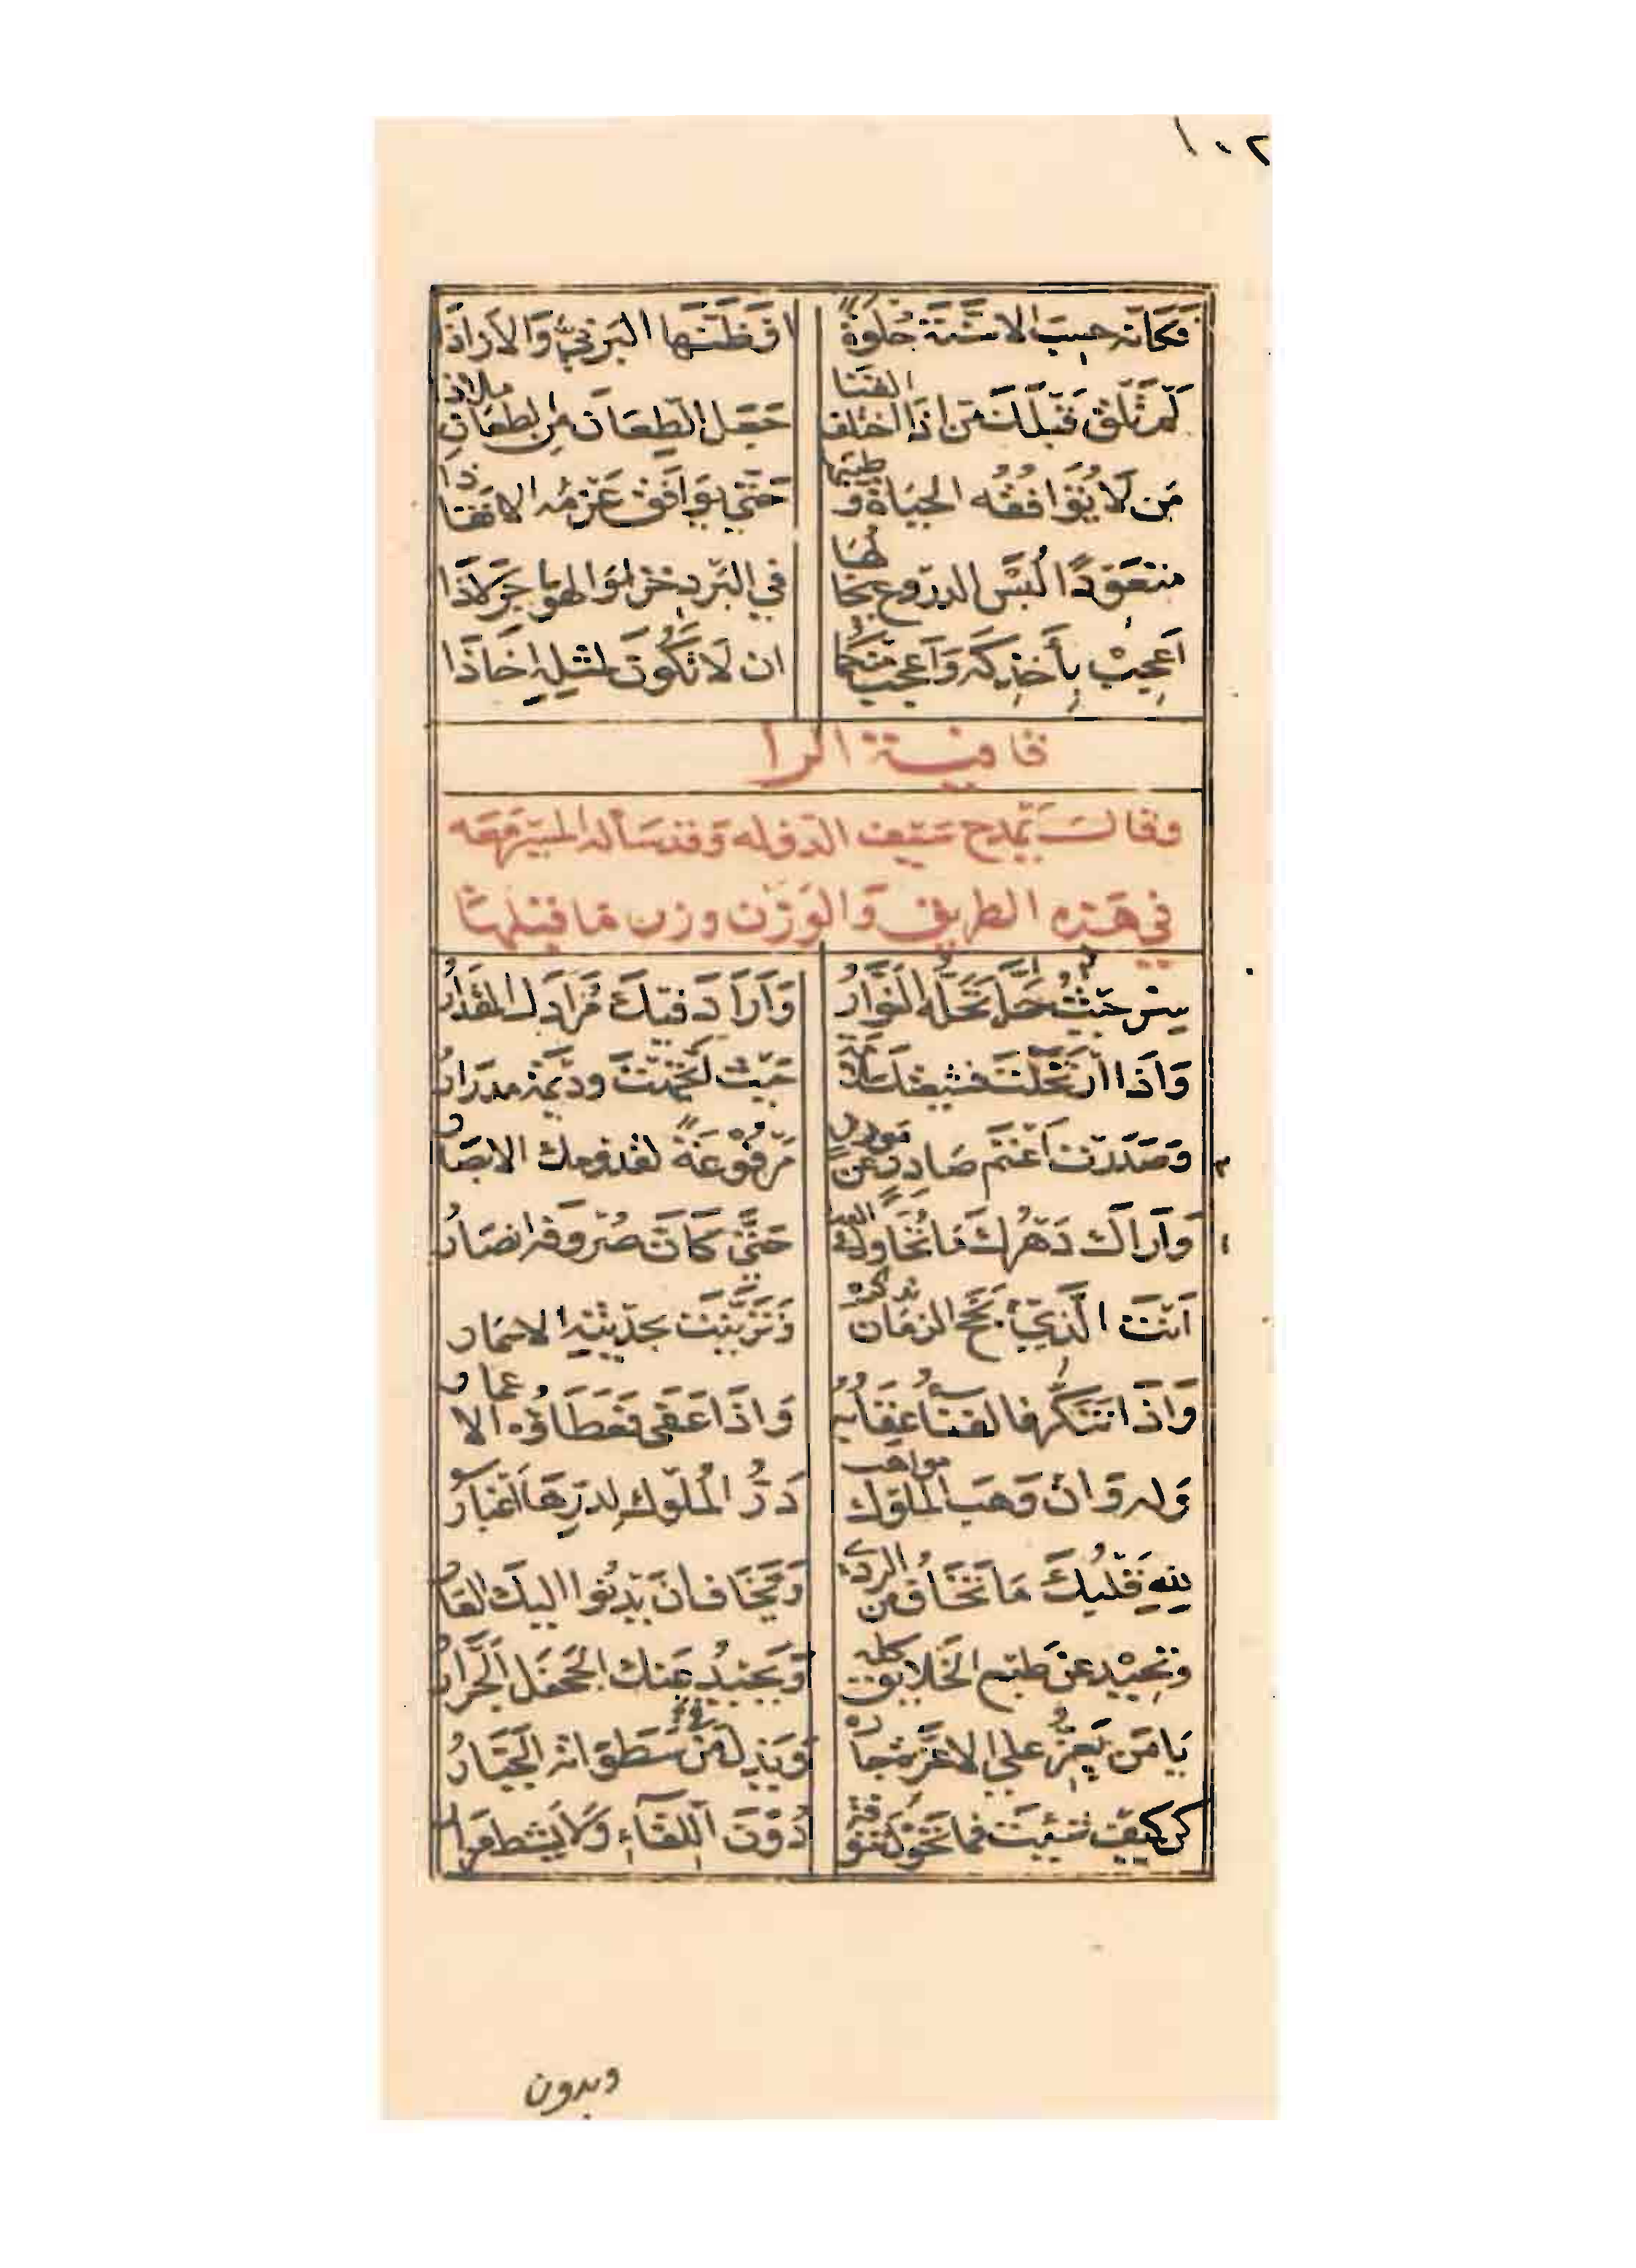 ١٠٢
فكانه حسب الاسنّة حُلوةً اوظنّها البرنيّ والازاذا
لم تلق قبلك من اذا اختلف القنا جعل الطعان من الطعان ملاذا
من لا توافقه الحياة وطيبها حتى يوافق عزمه الانفاذا
متعوّدًا لُبس الدروع يخالها في البرد خزا والهواجر لاذا
اعجِبْ بأخذكه واعجب منكما ان لا تكون لمثله اخاذا
قافية الرا
وقال يمدح سيف الدوله وقد ساله المسير معه
في هذه الطريق والوزن وزن ما قبلها
سِرْ حيثُ حلّ تحلّه النوّارُ واراد فيك مرادك المقدارُ
واذا ارتحلت فشيعتك سلامة حيث اتجهت وديمة مدرارُ
وصدرت اغنم صادر عن مورد مرفوعةً لقدومك الابصارُ
واراك دهرك ما تحاول في العدا حتى كانّ صروفه انصارُ
انت الذي بجح الزمان بذكره وتزيّنت بحديثه الاسمار
واذا تنكّر فالفنا عقابُه واذا عفى فعطاؤه الاعمار
وله وان وهب الملوك مواهب درّ المُلوك لدرّها اغبارُ
لله قلبك ما تخاف من الردى وتخاف ان يدنوا اليك العارُ
وتحيد عن طبع الخلايق كله ويحيد عنك الجحفل الجرّارُ
يا من يعزّ على الاعزة جاره ويذلّ من سطواته الجبّارُ
كن كيف شيت فما تحول تنوفة دون اللقاء ولا يشط مزار
وبدون